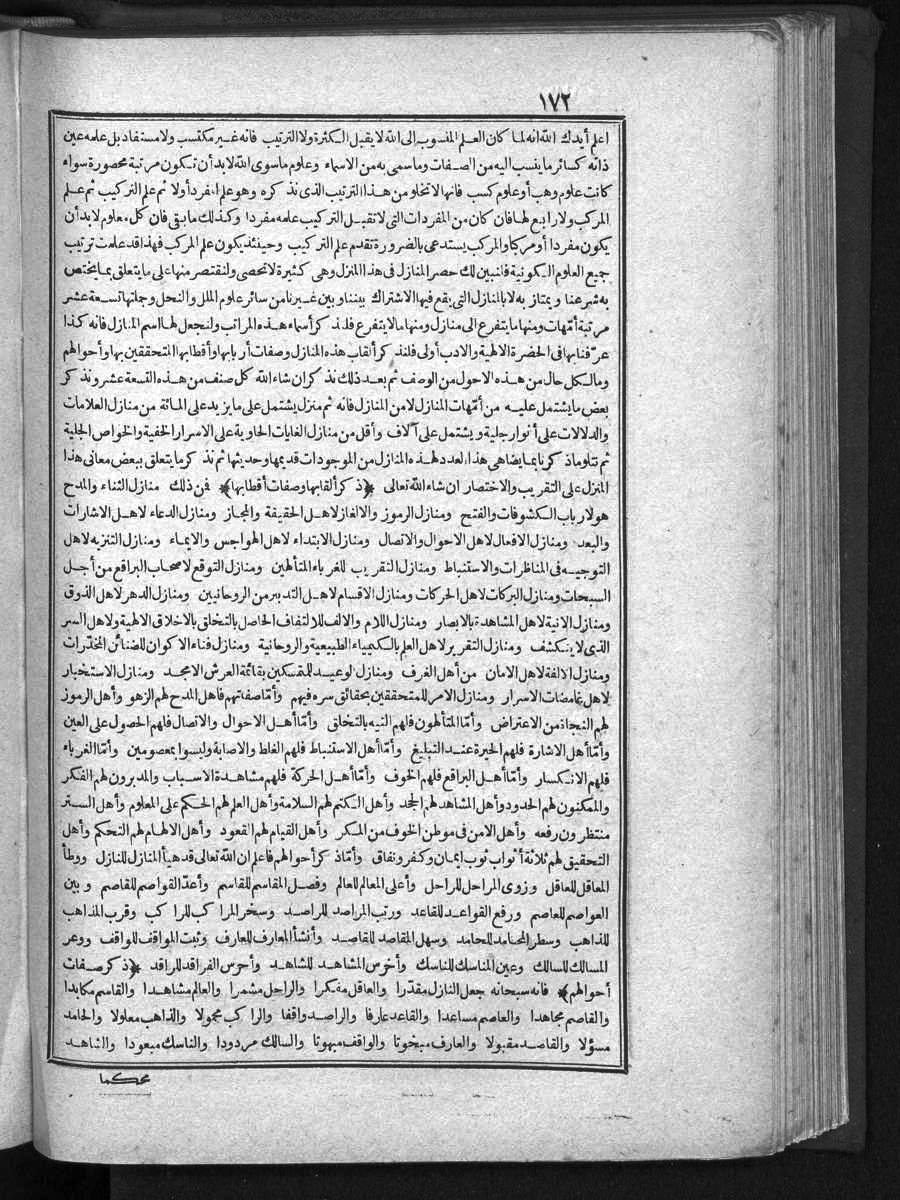 ١٧٢
اعلم أيدك الله انه لما كان العلم المنسوب الى الله لا يقبل الكثرة ولا الترتيب فانه غير مكتسب ولا مستفاد بل علمه عين
ذاته كسائر ما ينسب اليه من الصفات وما سمى به من الاسماء وعلوم ما سوى الله لابد أن تكون مرتبة محصورة سواء
كانت علوم وهب أو علوم كسب فانها لا تخلو من هذا الترتيب الذى نذكره وهو علم المفرد أولا ثم علم التركيب ثم علم
المركب ولا رابع لها فان كان من المفردات التى لا تقبل التركيب علمه مفردا وكذلك ما بقى فان كل معلوم لابد أن
يكون مفردا أو مركبا والمركب يستدعى بالضرورة تقدم علم التركيب وحينئذ يكون علم المركب فهذا قد علمت ترتيب
جميع العلوم الكونية فلنبين لك حصر المنازل فى هذا المنزل وهى كثيرة لا تحصى ولنقتصر منها على ما يتعلق بما يختص
به شرعنا ويمتاز به لا بالمنازل التى يقع فيها الاشتراك بيننا وبين غيرنا من سائر علوم الملل والنحل وجملتها تسعة عشر
مرتبة أمهات ومنها ما يتفرع الى منازل ومنها ما لا يتفرع فلنذكر أسماء هذه المراتب ولنجعل لها اسم المنازل فانه كذا
عرّفنا بها فى الحضرة الالهية والادب أولى فلنذكر ألقاب هذه المنازل وصفات أربابها وأقطابها المتحققين بها وأحوالهم
وما لكل حال من هذه الاحول من الوصف ثم بعد ذلك نذكر ان شاء الله كل صنف من هذه التسعة عشر ونذكر
بعض ما يشتمل عليه من أمهات المنازل لا من المنازل فانه ثم منزل يشتمل على ما يزيد على المائة من منازل العلامات
والدلالات على أنوار جلية ويشتمل على آلاف وأقل من منازل الغايات الحاوية على الاسرار الخفية والخواص الجلية
ثم نتلو ماذكرنا بما يضاهى هذا العدد لهذه المنازل من الموجودات قديمها وحديثها ثم نذكر ما يتعلق ببعض معانى هذا
المنزل على التقريب والاختصار ان شاء الله تعالى ﴿ذكر ألقابها وصفات أقطابها﴾ فمن ذلك منازل الثناء والمدح
هو لارباب الكشوفات والفتح ومنازل الرموز والالغاز لاهل الحقيقة والمجاز ومنازل الدعاء لاهل الاشارات
والبعد ومنازل الافعال لاهل الاحوال والاتصال ومنازل الابتداء لاهل الهواجس والايماء ومنازل التنزيه لاهل
التوجيه فى المناظرات والاستنباط ومنازل التقريب للغرباء المتألهين ومنازل التوقع لاصحاب البراقع من أجل
السبحات ومنازل البركات لاهل الحركات ومنازل الاقسام لاهل التدبير من الروحانيين ومنازل الدهر لاهل الذوق
ومنازل الانية لاهل المشاهدة بالابصار ومنازل اللام والالف للالتفاف الحاصل بالتخلق بالاخلاق الالهية ولاهل السر
الذى لا ينكشف ومنازل التقرير لاهل العلم بالكيمياء الطبيعية والروحانية ومنازل فناء الاكوان للضنائن المخدّرات
ومنازل الالفة لاهل الامان من أهل الغرف ومنازل الوعيد للمتمسكين بقائمة العرش الامجد ومنازل الاستخبار
لاهل غامضات الاسرار ومنازل الامر للمتحققين بحقائق سره فيهم وأمّا صفاتهم فاهل المدح لهم الزهو وأهل الرموز
لهم النجاة من الاعتراض وأمّا المتألهون فلهم التيه بالتخلق وأمّا أهل الاحوال والاتصال فلهم الحصول على العين
وأمّا أهل الاشارة فلهم الحيرة عند التبليغ وأمّا أهل الاستنباط فلهم الغلط والاصابة وليسوا بمعصومين وأمّا الغرباء
فلهم الانكسار وأمّا أهل البراقع فلهم الخوف وأمّا أهل الحركة فلهم مشاهدة الاسباب والمدبرون لهم الفكر
والممكنون لهم الحدود وأهل المشاهد لهم الجحد وأهل الكتم لهم السلامة وأهل العلم لهم الحكم على المعلوم وأهل الستر
منتظرون رفعه وأهل الامن فى موطن الخوف من المكر وأهل القيام لهم القعود وأهل الالهام لهم التحكم وأهل
التحقيق لهم ثلاثة أثواب ثوب ايمان وكفر ونفاق وأمّا ذكر أحوالهم فاعلم ان الله تعالى قد هيأ المنازل للنازل ووطأ
المعاقل للعاقل وزوى المراحل للراحل وأعلى المعالم للعالم وفصل المقاسم للقاسم وأعدّ القواصم للقاصم وبين
العواصم للعاصم ورفع القواعد للقاعد ورتب المراصد للراصد وسخر المراكب للراكب وقرب المذاهب
للذاهب وسطر المحامد للحامد وسهل المقاصد للقاصد وأنشأ المعارف للعارف وثبت المواقف للواقف ووعر
المسالك للسالك وعين المناسك للناسك وأخرس المشاهد للشاهد وأحرس الفراقد للراقد ﴿ذكر صفات
أحوالهم﴾ فانه سبحانه جعل النازل مقدّرا والعاقل مفكرا والراحل مشمرا والعالم مشاهدا والقاسم مكابدا
والقاصم مجاهدا والعاصم مساعدا والقاعد عارفا والراصد واقفا والراكب محمولا والذاهب معلولا والحامد
مسؤلا والقاصد مقبولا والعارف مبخوتا والواقف مبهوتا والسالك مردودا والناسك مبعودا والشاهد
محكما